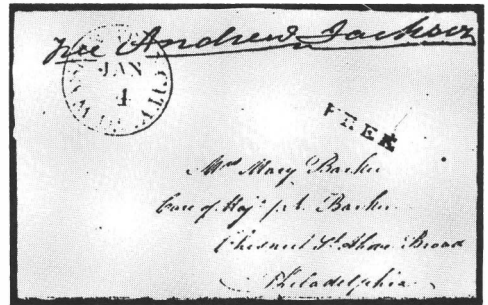 Free Andrew Jackson
CITY
JAN
4
FREE
Mrs Mary Barker
Care of Maj. Barker
Chesnut St Above Broad
Philadelphia